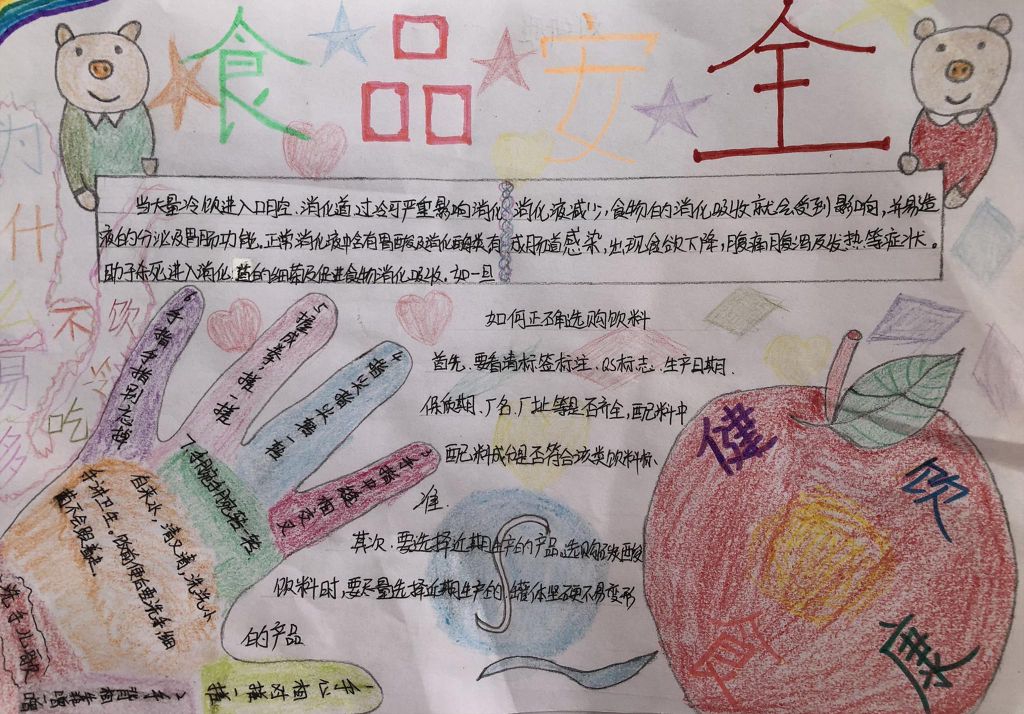 食品安全
当大量冷饮进入口腔、消化道,过冷可严重影响消化
液的分泌及胃肠功能。正常消化液中含有胃酸及消化酶类有
助于杀死进入消化道的细菌及促进食物消化吸收。如一旦
消化液减少,食物的消化吸收就会受到影响,并易造
成肠道感染,出现食欲下降,腹痛腹泻及发热等症状。
为什么不饮冷
易多吃
如何正确选购饮料
首先、要看清标签标注、QS标志、生产日期、
保质期、厂名、厂址等是否齐全,配料中
配料成分是否符合该类饮料标
准.
其次、要选择近期生产的产品、选购碳酸
饮料时,要尽量选择近期生产的、罐体坚硬不易变形
的产品
健
康
饮
食
洗手儿歌
1手心相对搓一搓
2手背相靠
3手指中缝相交叉
4指尖指尖
5握成拳,搓一搓
6手指手指别
7手腕
自来水,清又清,洗洗小
手讲卫生。饭前便后要洗手细
菌不会跟着